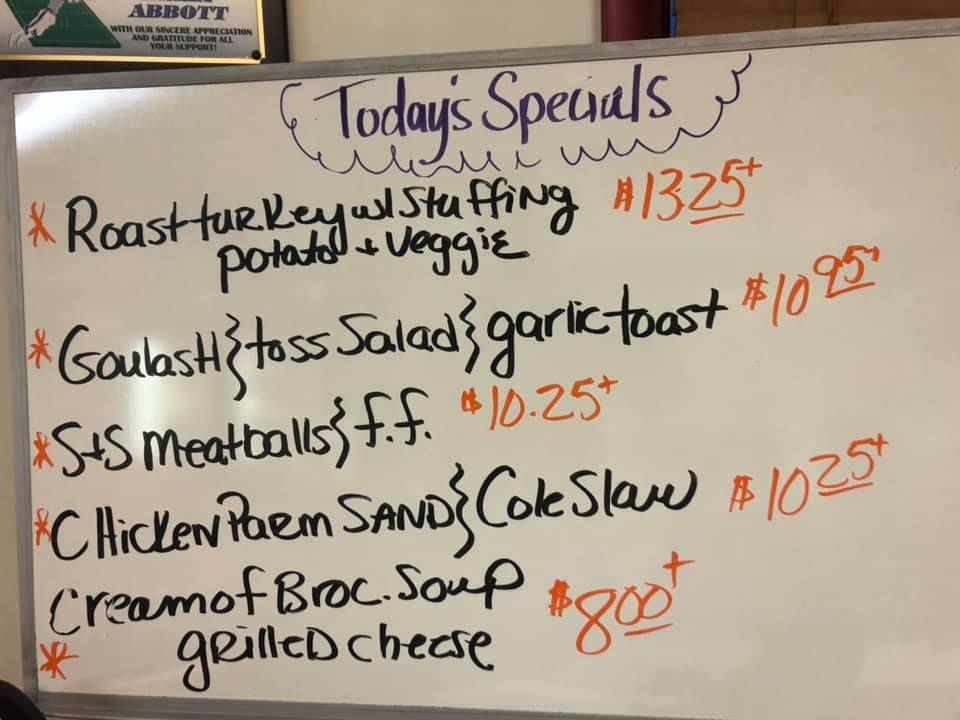 ABBOTT
WITH OUR SINCERE APPRECIATION
AND GRATITUDE FOR ALL
YOUR SUPPORT!
Today's Specials
* Roast turkey w/ Stuffing $13.25+
potato + veggie
* Goulash } toss Salad } garlic toast $10.95+
* S+S Meatballs } f.f. $10.25+
* Chicken Parm SAND } Cole Slaw $10.25+
Cream of Broc. Soup $8.00+
* grilled cheese